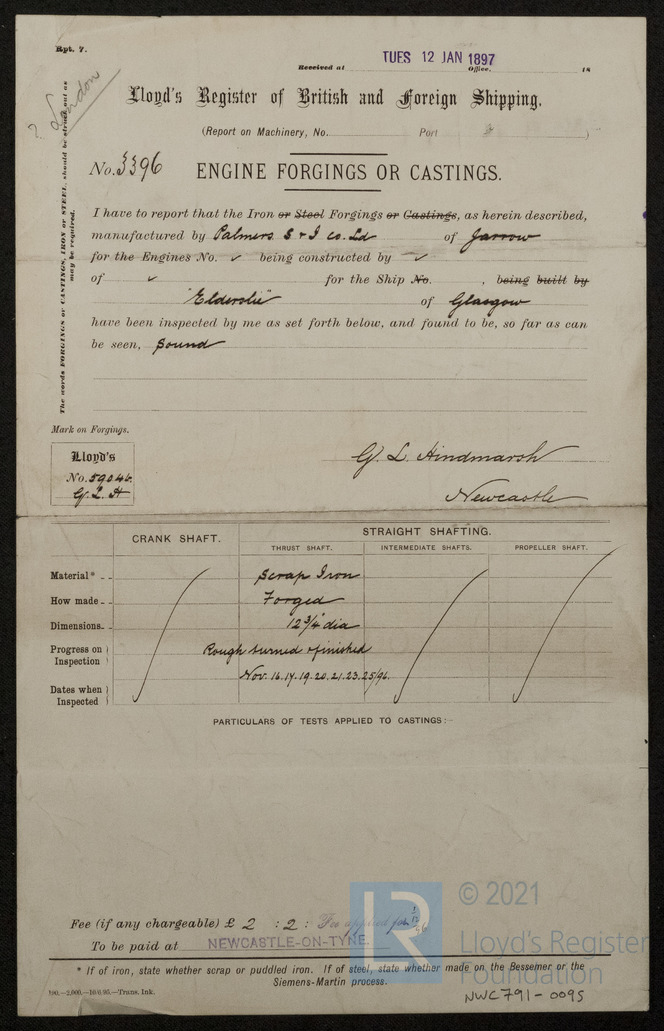 Rpt. 7.
TUES 12 JAN 1897
Received at Office, 18
? London
Lloyd's Register of British and Foreign Shipping.
(Report on Machinery, No. Port )
No. 3396 ENGINE FORGINGS OR CASTINGS.
The words FORGINGS or CASTINGS, IRON or STEEL, should be struck out as
may be required.
I have to report that the Iron or Steel Forgings or Castings, as herein described,
manufactured by Palmers S & I Co. Ld of Jarrow
for the Engines No. ✓ being constructed by ✓
of ✓ for the Ship No. , being built by
"Elderslie" of Glasgow
have been inspected by me as set forth below, and found to be, so far as can
be seen, Sound
Mark on Forgings.
Lloyd's
No. 5904b.
G. L. H
G. L. Hindmarsh
Newcastle
CRANK SHAFT. STRAIGHT SHAFTING.
THRUST SHAFT. INTERMEDIATE SHAFTS. PROPELLER SHAFT.
Material* Scrap Iron
How made Forged
Dimensions 12 3/4" dia
Progress on Inspection Rough turned & finished
Dates when Inspected Nov. 16.17.19.20.21.23.25/96.
PARTICULARS OF TESTS APPLIED TO CASTINGS:—
Fee (if any chargeable) £ 2 : 2 : Fee applied for
To be paid at NEWCASTLE-ON-TYNE
* If of iron, state whether scrap or puddled iron. If of steel, state whether made on the Bessemer or the
Siemens-Martin process.
190.—2,000.—10/6/95.—Trans. Ink.
NWC791-0095
LR
© 2021
Lloyd's Register
Foundation